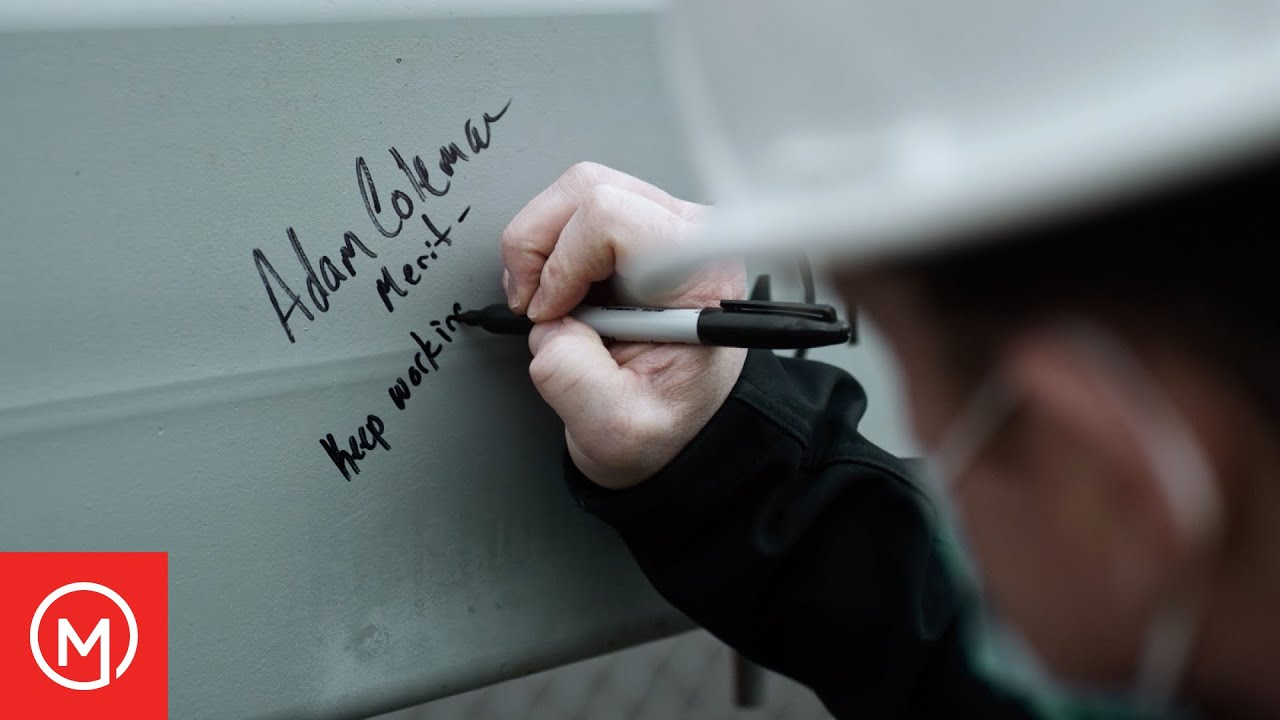 Adam Coleman
Merit-
Keep working
M